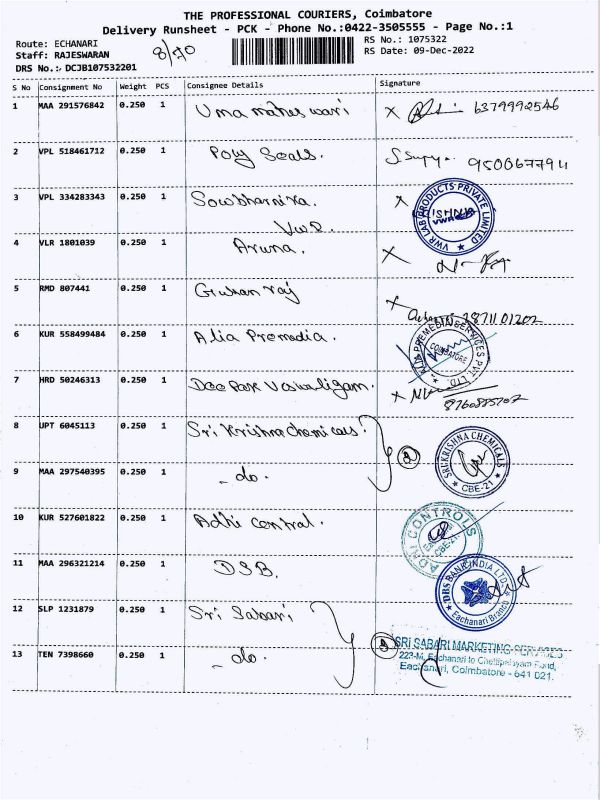 THE PROFESSIONAL COURIERS, Coimbatore
Delivery Runsheet - PCK - Phone No.:0422-3505555 - Page No.:1
Route: ECHANARI
Staff: RAJESWARAN
DRS No.: DCJB107532201
RS No.: 1075322
RS Date: 09-Dec-2022
S No Consignment No Weight PCS Consignee Details Signature
1 MAA 291576842 0.250 1 Uma maheswari 6379992546
2 VPL 518461712 0.250 1 Poly Seals. 9500677911
3 VPL 334283343 0.250 1 Sowbharnika. VWR.
VWR LAB PRODUCTS PRIVATE LIMITED
4 VLR 1801039 0.250 1 Aruna.
5 RMD 807441 0.250 1 Gukan raj
6 KUR 558499484 0.250 1 Alia Premedia.
ALIA PREMEDIA SERVICES PVT. LTD.
COIMBATORE
7 HRD 50246313 0.250 1 Deepak
8 UPT 6045113 0.250 1 Sri Krishna chemicals. 2
SRI KRISHNA CHEMICALS
CBE-21
9 MAA 297540395 0.250 1 - do.
10 KUR 527601822 0.250 1 Adhi control.
ADHI CONTROLS
CBE-21.
11 MAA 296321214 0.250 1 DSB.
DBS BANK INDIA LTD
Eachanari Branch
12 SLP 1231879 0.250 1 Sri Sabari
13 TEN 7398660 0.250 1 - do.
SRI SABARI MARKETING SERVICES
Eachanari to Chettipalayam Road,
Eachanari, Coimbatore - 641 021.